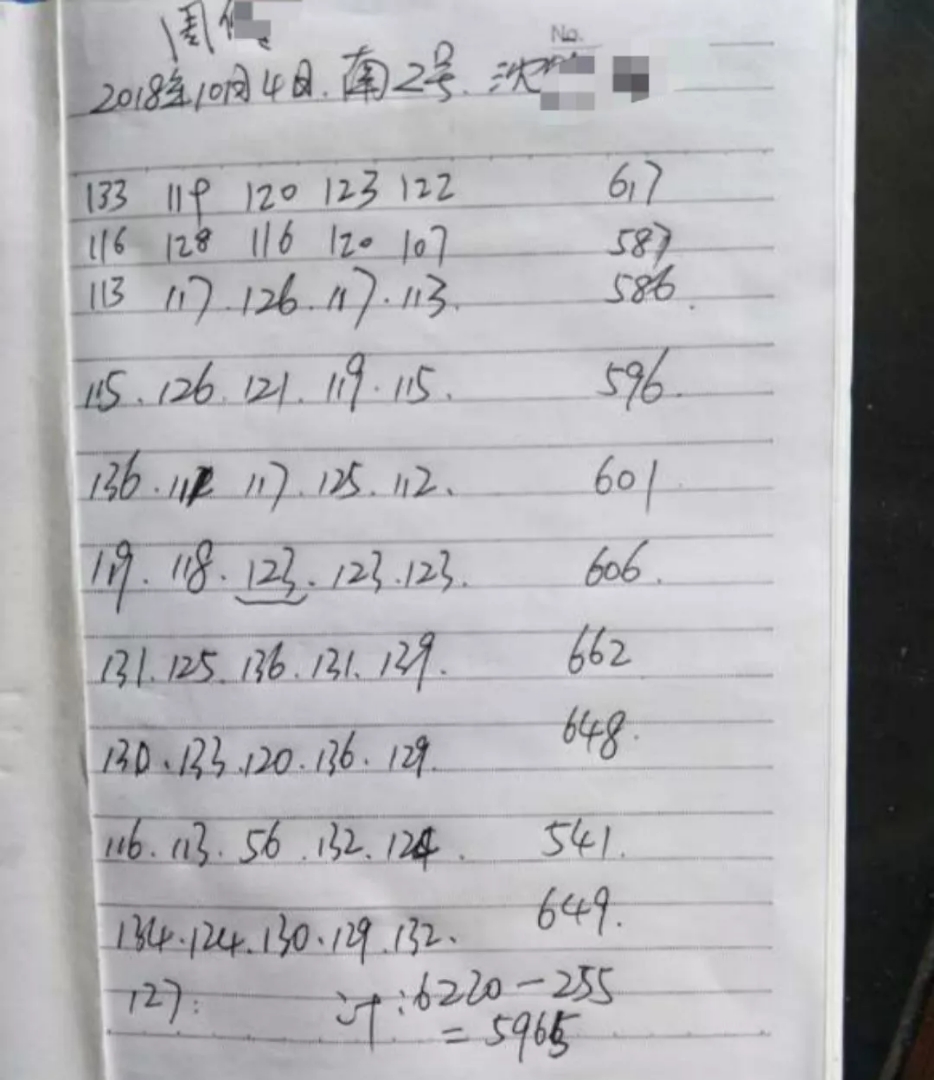 周
No.
2018年10月4日.南2号.沈
133 119 120 123 122 617
116 128 116 120 107 587
113 117.126.117.113. 586.
115.126.121.119.115. 596.
136.111 117.125.112. 601
119.118.123.123.123. 606.
131.125.136.131.139. 662
130.133.120.136.129. 648.
116.113.56.132.124. 541.
134.124.130.129.132. 649.
127: 计:6220-255
=5965